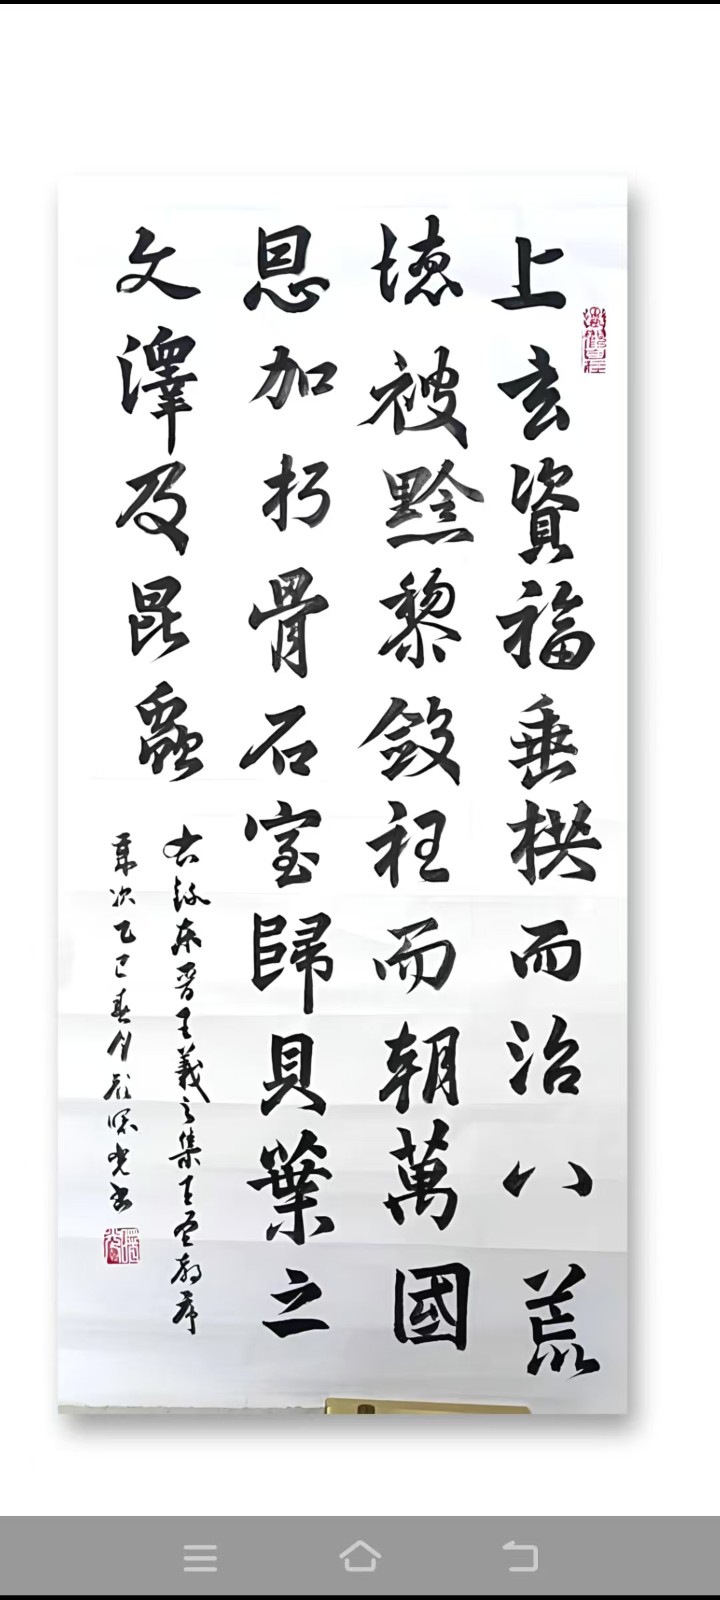 上玄資福垂拱而治八荒
德被黔黎斂衽而朝萬國
恩加朽骨石室歸貝葉之
文澤及昆蟲
右録东晋王羲之集王圣教序
歲次乙巳春月 光书